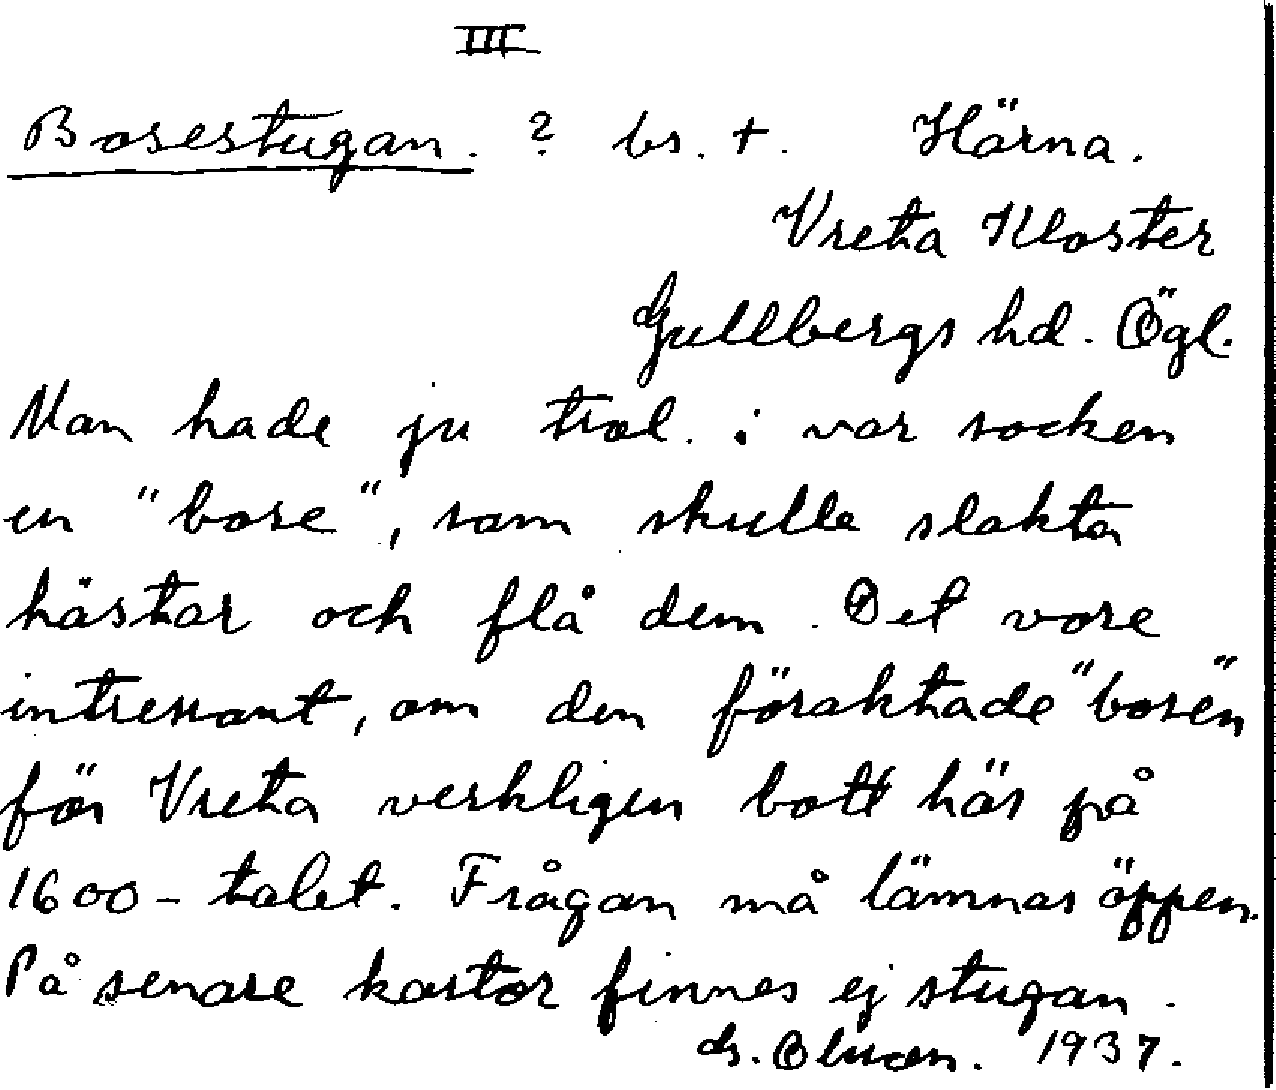 III
Bosestugan. ? bs. †. Härna.
Vreta Kloster
Gullbergs hd. Ögl.
Man hade ju trol. i var socken
en "bose", som skulle slakta
hästar och flå dem. Det vore
intressant, om den föraktade "bosen"
för Vreta verkligen bott här på
1600-talet. Frågan må lämnas öppen.
På senare kartor finnes ej stugan.
1937.